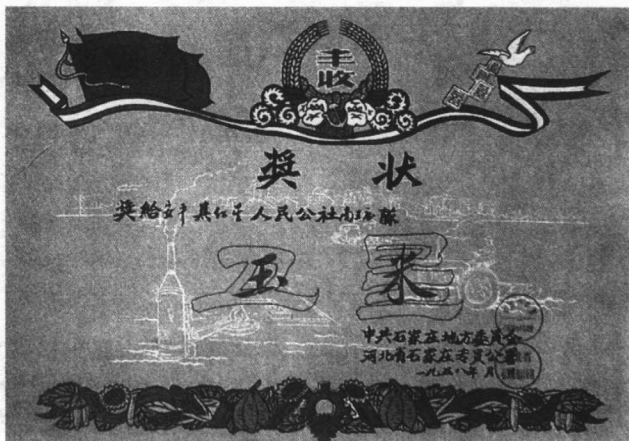 丰
收
奖 状
奖给安平县红星人民公社南王庄队
卫 星
玉 米
中共石家庄地方委员会
河北省石家庄专员公署
一九五八年 月